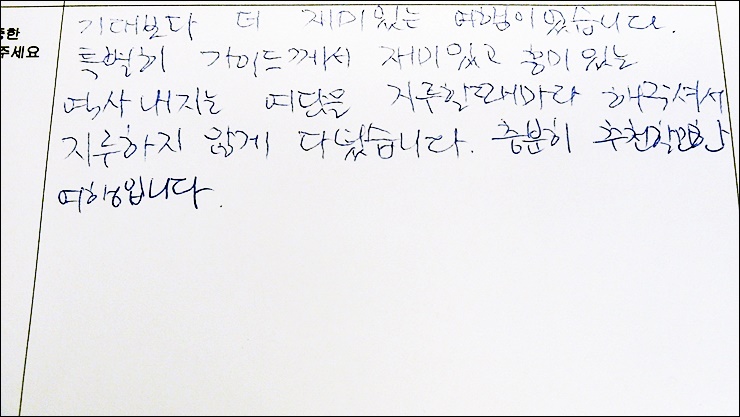 기대보다 더 재미있는 여행이였습니다.
중한
특별히 가이드께서 재미있고 흥미있는
주세요
역사 내지는 여담을 지루할때마다 해주셔서
지루하지 않게 다녔습니다. 충분히 추천할만한
여행입니다.